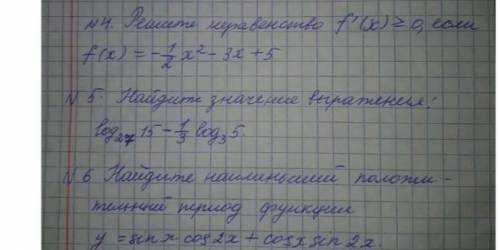 №4. Решите неравенство f'(x) ≥ 0, если
f(x) = -1/2 x² - 3x + 5
№5. Найдите значение выражения:
log₂₇ 15 - 1/3 log₃ 5.
№6 Найдите наименьший положи-
тельный период функции
y = sin x cos 2x + cos x sin 2x.